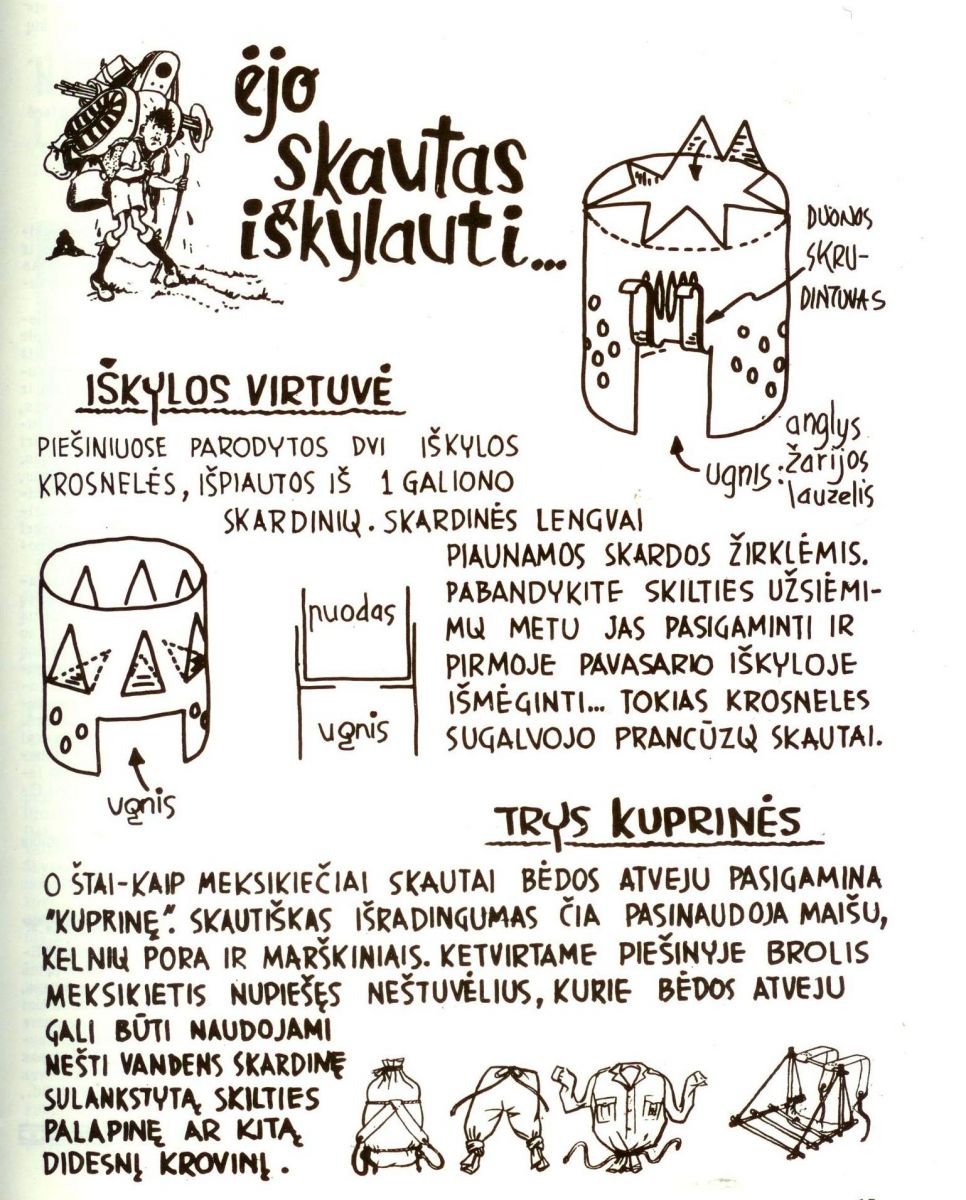 ėjo
skautas
iškylauti...
DUONOS
SKRU-
DINTUVAS
IŠKYLOS VIRTUVĖ
PIEŠINIUOSE PARODYTOS DVI IŠKYLOS
KROSNELĖS, IŠPIAUTOS IŠ 1 GALIONO
SKARDINIŲ. SKARDINĖS LENGVAI
PIAUNAMOS SKARDOS ŽIRKLĖMIS.
PABANDYKITE SKILTIES UŽSIĖMI-
MŲ METU JAS PASIGAMINTI IR
PIRMOJE PAVASARIO IŠKYLOJE
IŠMĖGINTI... TOKIAS KROSNELES
SUGALVOJO PRANCŪZŲ SKAUTAI.
ugnis:
anglys
žarijos
lauželis
puodas
ugnis
ugnis
TRYS KUPRINĖS
O ŠTAI-KAIP MEKSIKIEČIAI SKAUTAI BĖDOS ATVEJU PASIGAMINA
"KUPRINĘ". SKAUTIŠKAS IŠRADINGUMAS ČIA PASINAUDOJA MAIŠU,
KELNIŲ PORA IR MARŠKINIAIS. KETVIRTAME PIEŠINYJE BROLIS
MEKSIKIETIS NUPIEŠĘS NEŠTUVĖLIUS, KURIE BĖDOS ATVEJU
GALI BŪTI NAUDOJAMI
NEŠTI VANDENS SKARDINĘ
SULANKSTYTĄ SKILTIES
PALAPINĘ AR KITĄ
DIDESNĮ KROVINĮ.